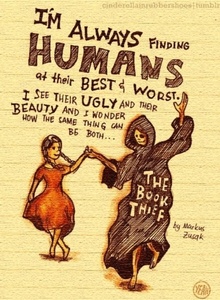 cinderellainrubbershoes|tumblr
I'M ALWAYS FINDING
HUMANS
at their BEST & WORST.
I SEE THEIR UGLY AND THEIR
BEAUTY AND I WONDER
HOW THE SAME THING CAN
BE BOTH...
THE
BOOK
THIEF
by Markus
Zusak
YEAH!